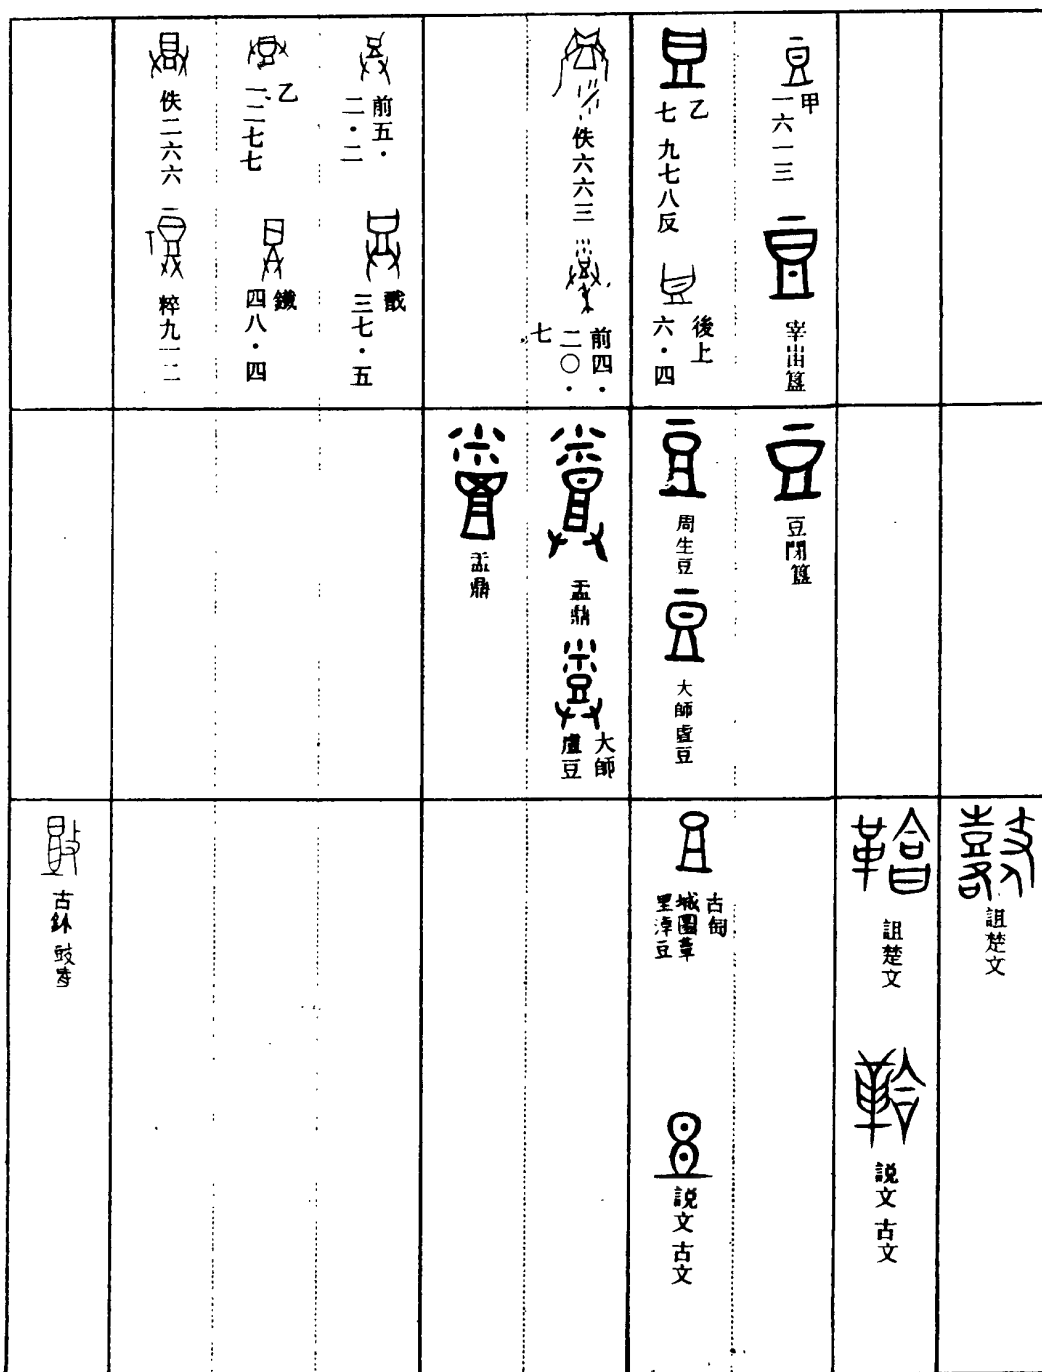 甲一六一三
宰甶簋
乙七九七八反
後上六・四
佚六六三
前四・二〇・七
前五・二・二
戩三七・五
乙一二七七
鐵四八・四
佚二六六
粹九一二
豆閉簋
周生豆
大師虘豆
盂鼎
大師虘豆
盂鼎
詛楚文
詛楚文
說文古文
古匋
城圜䓬
里淖豆
說文古文
古鉨